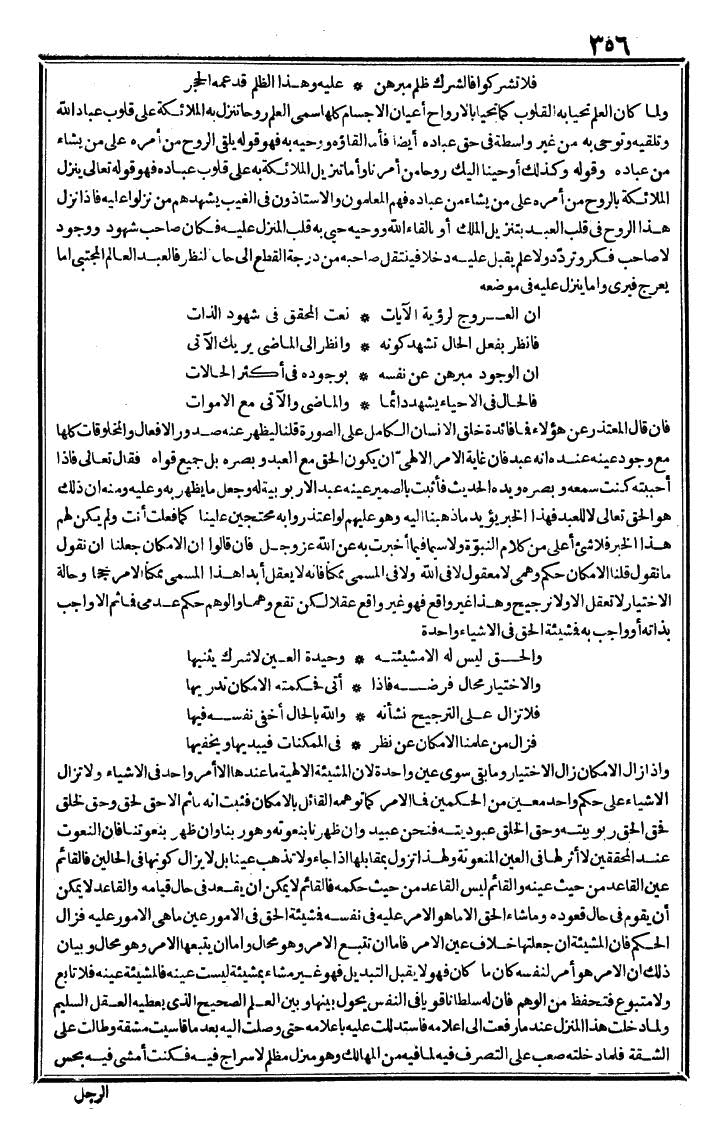 ٣٥٦
فلا تشركوا فالشرك ظلم مبرهن * عليه وهذا الظلم قد عمه الحجر
ولما كان العلم تحيا به القلوب كما تحيا بالارواح أعيان الاجسام كلها سمى العلم روحا تنزل به الملائكة على قلوب عباد الله
وتلقيه وتوحى به من غير واسطة فى حق عباده أيضا فأما القاؤه ووحيه به فهو قوله يلقى الروح من أمره على من يشاء
من عباده وقوله وكذلك أوحينا اليك روحا من أمرنا وأما تنزيل الملائكة به على قلوب عباده فهو قوله تعالى ينزل
الملائكة بالروح من أمره على من يشاء من عباده فهم المعلمون والاستاذون فى الغيب يشهدهم من نزلوا عليه فاذا نزل
هذا الروح فى قلب العبد بتنزيل الملك أو بالقاء الله ووحيه حيى به قلب المنزل عليه فكان صاحب شهود ووجود
لا صاحب فكر وتردّد ولا علم يقبل عليه دخلا فينتقل صاحبه من درجة القطع الى حال النظر فالعبد العالم المجتبى اما
يعرج فيرى واما ينزل عليه فى موضعه
ان العروج لرؤية الآيات * نعت المحقق فى شهود الذات
فانظر بفعل الحال تشهد كونه * وانظر الى الماضى يريك الآتى
ان الوجود مبرهن عن نفسه * بوجوده فى أكثر الحالات
فالحال فى الاحياء يشهد دائما * والماضى والآتى مع الاموات
فان قال المعتذر عن هؤلاء فما فائدة خلق الانسان الكامل على الصورة قلنا ليظهر عنه صدور الافعال والمخلوقات كلها
مع وجود عينه عنده انه عبد فان غاية الامر الالهىّ ان يكون الحق مع العبد وبصره بل جميع قواه فقال تعالى فاذا
أحببته كنت سمعه وبصره ويده الحديث فأثبت بالضمير عينه عبدا لا ربوبية له وجعل ما يظهر به وعليه ومنه ان ذلك
هو الحق تعالى لا للعبد فهذا الخبر يؤيد ما ذهبنا اليه وهو عليهم لو اعتذروا به محتجين علينا كما فعلت أنت ولم يكن لهم
هذا الخبر فلا شئ أعلى من كلام النبوّة ولا سيما فيما أخبرت به عن الله عز وجل فان قالوا ان الامكان جعلنا ان نقول
ما نقول قلنا الامكان حكم وهمى لا معقول لا فى الله ولا فى المسمى ممكنا فانه لا يعقل أبدا هذا المسمى ممكنا الا مرجحا وحالة
الاختيار لا تعقل الا ولا ترجيح وهذا غير واقع فهو غير واقع عقلا لكن تقع وهما والوهم حكم عدمى فما ثم الا واجب
بذاته أو واجب به فمشيئة الحق فى الاشياء واحدة
والحق ليس له الا مشيئته * وحيدة العين لا شرك يثنيها
والاختيار محال فرضه فاذا * أتى فحكمته الامكان تدريها
فلا تزال على الترجيح نشأته * والله بالحال أخفى نفسه فيها
فزال من علمنا الامكان عن نظر * فى الممكنات فيبديها ويخفيها
واذا زال الامكان زال الاختيار وما بقى سوى عين واحدة لان المشيئة الالهية ما عندها الا أمر واحد فى الاشياء ولا تزال
الاشياء على حكم واحد معين من الحكمين فما الامر كما توهمه القائل بالامكان فثبت انه ما ثم الا حق لحق وحق لخلق
فحق الحق ربوبيته وحق الخلق عبوديته فنحن عبيد وان ظهرنا بنعوته وهو ربنا وان ظهر بنعوتنا فان النعوت
عند المحققين لا أثر لها فى العين المنعوتة ولهذا تزول بمقابلها اذا جاء ولا تذهب عينا بل لا يزال كونها فى الحالين فالقائم
عين القاعد من حيث عينه والقائم ليس القاعد من حيث حكمه فالقائم لا يمكن ان يقعد فى حال قيامه والقاعد لا يمكن
أن يقوم فى حال قعوده وما شاء الحق الا ما هو الامر عليه فى نفسه فمشيئة الحق فى الامور عين ما هى الامور عليه فزال
الحكم فان المشيئة ان جعلتها خلاف عين الامر فاما ان تتبع الامر وهو محال واما ان يتبعها الامر وهو محال وبيان
ذلك ان الامر هو أمر لنفسه كان ما كان فهو لا يقبل التبديل فهو غير مشاء بمشيئة ليست عينه فالمشيئة عينه فلا تابع
ولا متبوع فتحفظ من الوهم فان له سلطانا قويا فى النفس يحول بينها وبين العلم الصحيح الذى يعطيه العقل السليم
ولما دخلت هذا المنزل عند ما رفعت الى اعلامه فاستدللت عليه باعلامه حتى وصلت اليه بعد ما قاسيت مشقة وطالت على
الشقة فلما دخلته صعب على التصرف فيه لما فيه من المهالك وهو منزل مظلم لا سراج فيه فكنت أمشى فيه بحس
الرجل